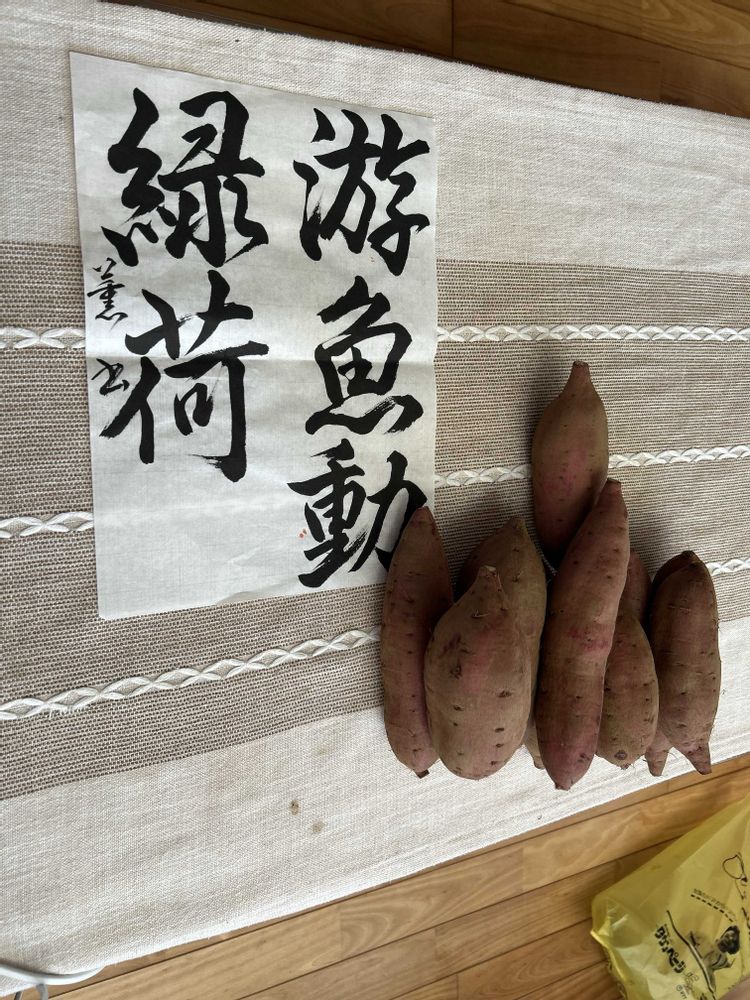 游魚動
緑荷
薫書